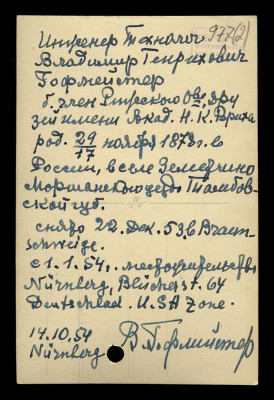 977(2)
Инженер Технолог
Владимир Генрихович
Гофмейстер
б. член Рижского О-ва, дру
зей имени Акад. Н. К. Рериха
род. 29/17 ноября 1873 г. в
России, в селе Земетчино
Моршанского уезда Тамбов-
ской губ.
снято 22. Дек. 53, в Braun-
schweige.
с 1.1.54, - местожительство
Nürnberg, Blücherst. 64
Deutschland. USA Zone.
14.10.54
Nürnberg
ВГофмейстер